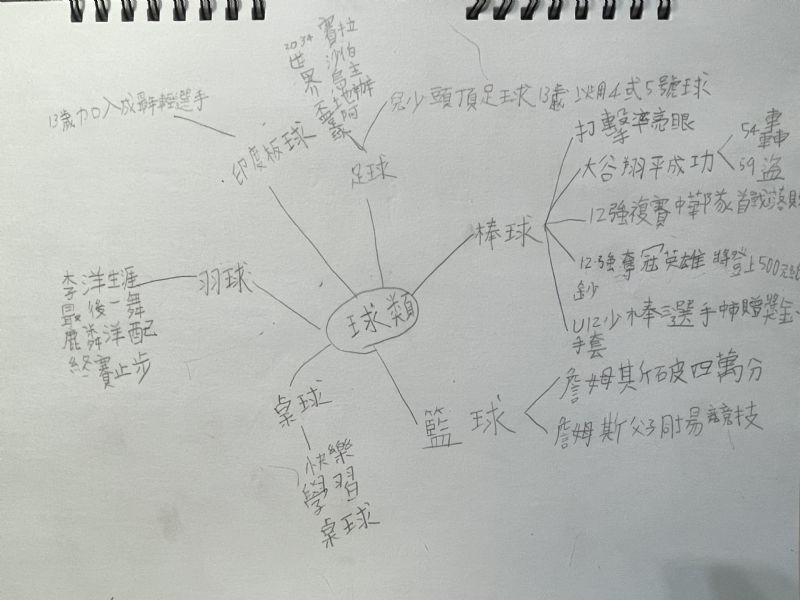 球類
足球
2034
世界盃
賽拉
沙伯
烏主
地辦
阿
兒少頭頂足球13歲以用4或5號球
棒球
打擊率亮眼
大谷翔平成功
54轟
59盜
12強複賽中華隊首戰落敗
12強奪冠英雄 將登上500元紙
鈔
U12少棒三選手姊贈獎金、
手套
籃球
詹姆斯破四萬分
詹姆斯父子同場競技
桌球
快樂
學習
桌球
羽球
李洋生涯
最後一舞
麟洋配
終賽止步
印度板球
13歲加入成年輕選手